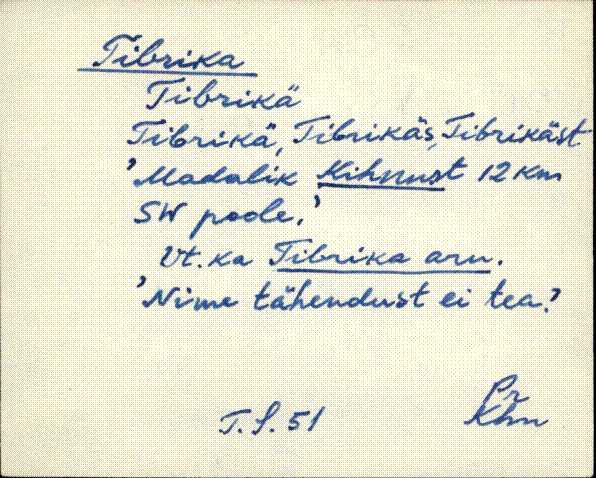 Tibrika
Tibrikä
Tibrikä, Tibrikäs, Tibrikäst
'Madalik Kihnust 12 km
SW poole.'
Vt. ka Tibrika aru.
'Nime tähendust ei tea.'
Pr
T.S. 51 Khn